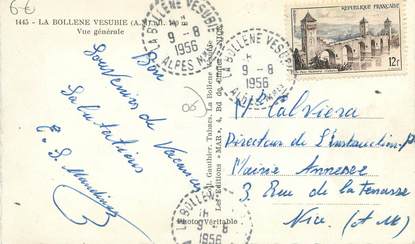 6 €
1445 - LA BOLLENE VESUBIE (A.-M.)
Vue générale
LA BOLLENE VESUBIE
9 - 8
1956
ALPES M
LA BOLLENE VESUBIE
9 - 8
1956
ALPES
REPUBLIQUE FRANÇAISE
12f
Bon
Souvenir de Vacances
Salutations
Gauthier, Tabacs, La Bollène
Les Editions "MAR", 4, Bd de
Photo Véritable
Mr Calviera
Directeur de l'Instruction P
Mairie Annexe
3 Rue de la Terrasse
Nice (A M)
LA BOLLENE VESUBIE
9 - 8
1956